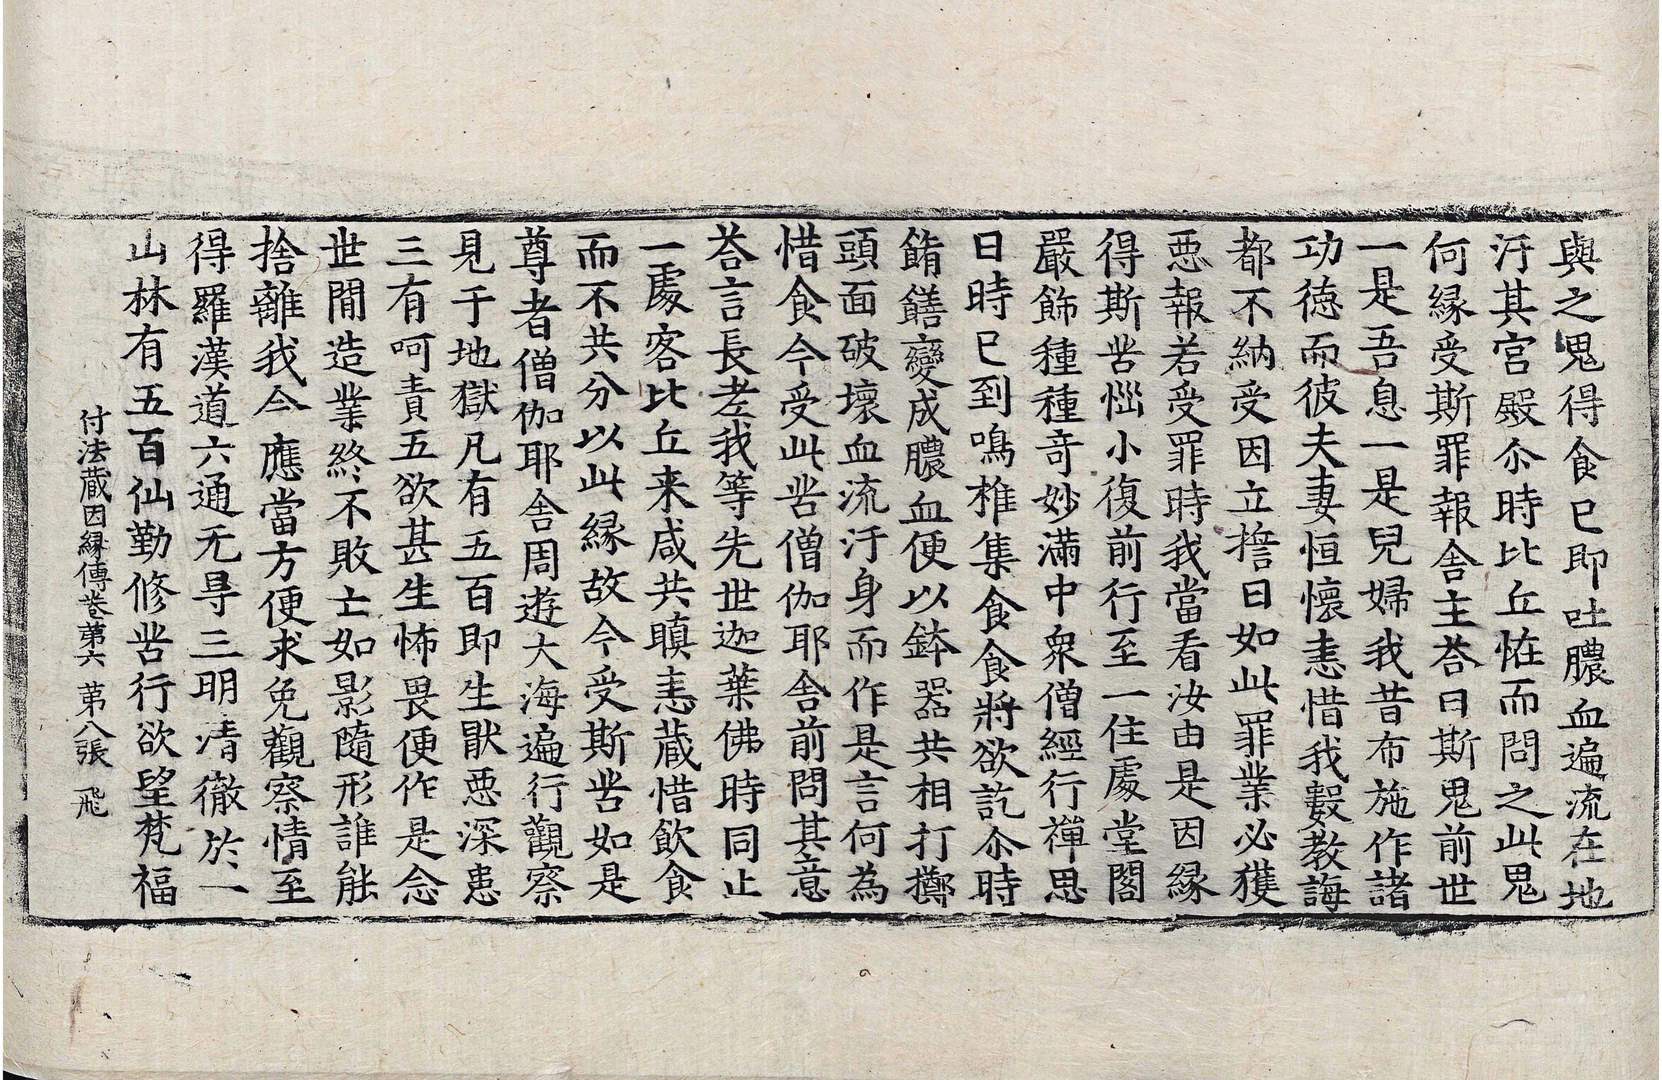 與之鬼得食已即吐膿血遍流在地
汙其宮殿尒時比丘恠而問之此鬼
何緣受斯罪報舍主荅曰斯鬼前世
一是吾息一是兒婦我昔布施作諸
功德而彼夫妻恒懷恚惜我數教誨
都不納受因立誓曰如此罪業必獲
惡報若受罪時我當看汝由是因緣
得斯苦惱小復前行至一住處堂閣
嚴飾種種奇妙滿中衆僧經行禪思
日時已到鳴椎集食食將欲訖尒時
餚饍變成膿血便以鉢器共相打擲
頭面破壞血流汙身而作是言何為
惜食今受此苦僧伽耶舍前問其意
荅言長老我等先世迦葉佛時同止
一處客比丘来咸共瞋恚藏惜飲食
而不共分以此緣故今受斯苦如是
尊者僧伽耶舍周遊大海遍行觀察
見于地獄凡有五百即生猒惡深患
三有呵責五欲甚生怖畏便作是念
世閒造業終不敗亡如影隨形誰能
捨離我今應當方便求免觀察情至
得羅漢道六通无㝵三明清徹於一
山林有五百仙勤修苦行欲望梵福
付法藏因緣傳卷第六　第八張　飛